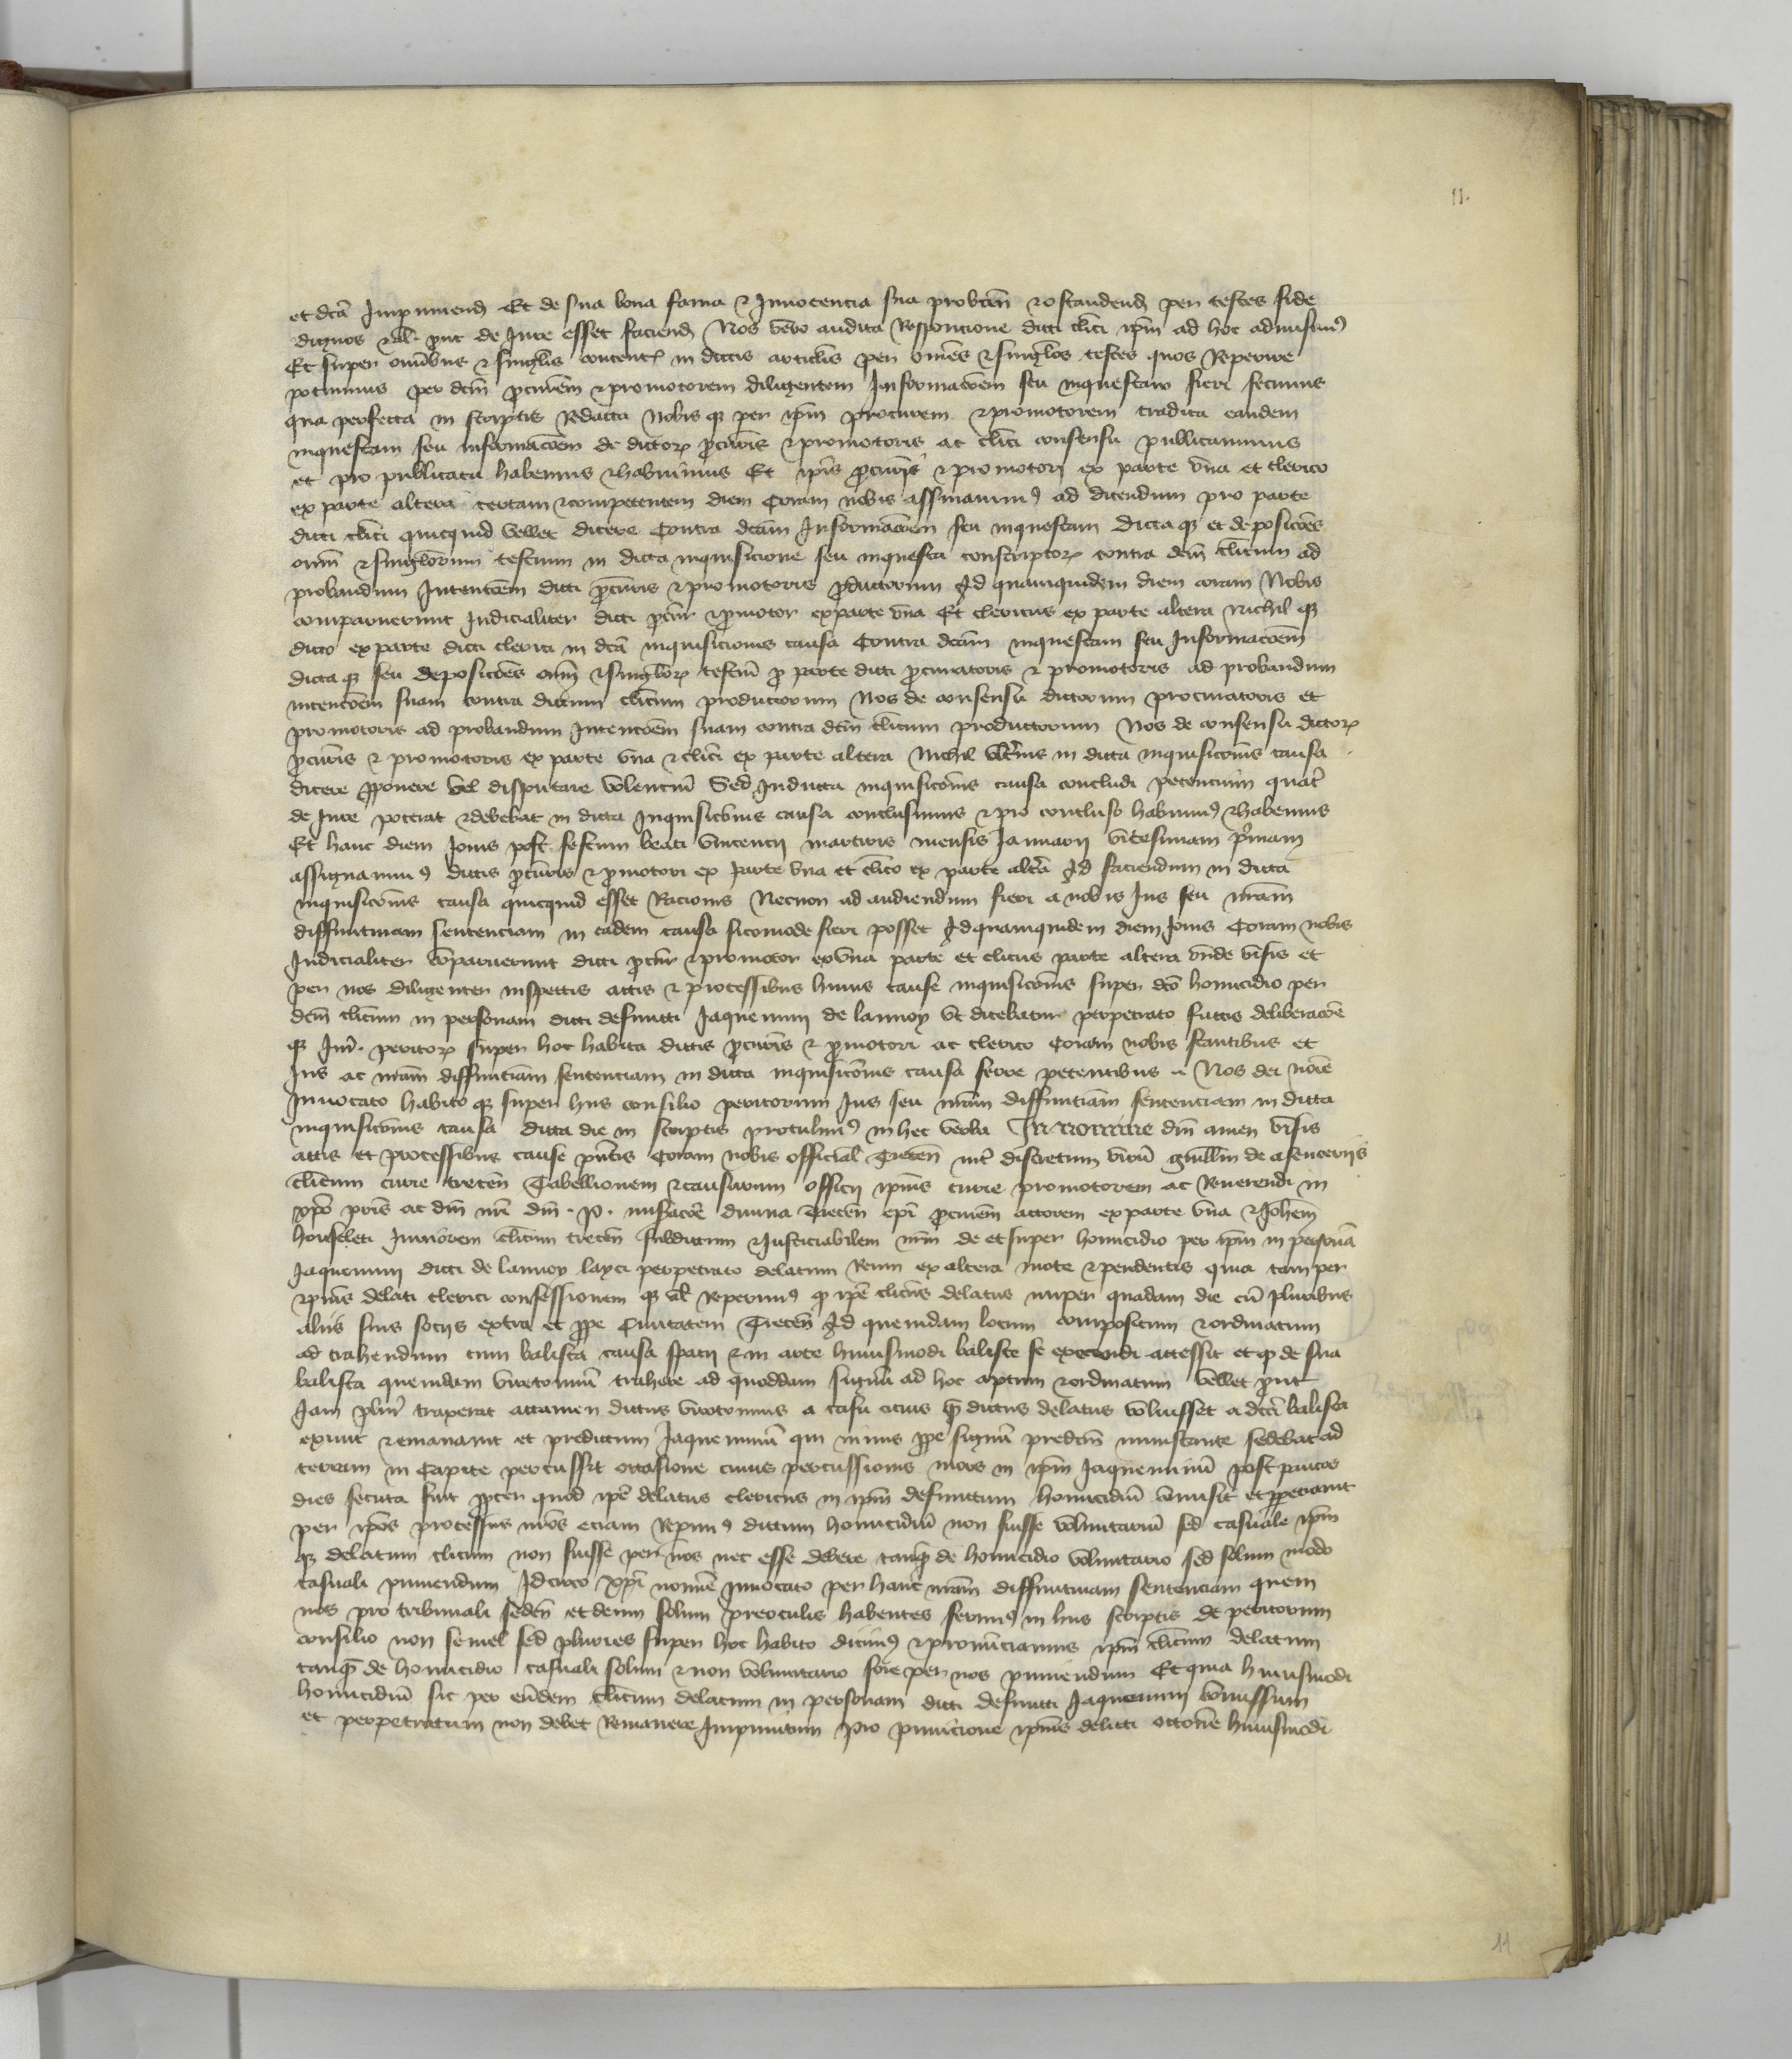 11.
et dcā Impuniend Et de sua bona fama & Innocencia sua probacōn & ostendend per testes fide
dignos & al. prout de Iure esset faciend Nos vero audita Responcione dicti clīci ipm ad hoc admisimꝰ
Et super omībus & singlis contentꝭ in dictis articlis per omēs & singlos testes quos Reperire
potuimus per dcm procurem & promotorem diligentem Informacōem seu inquestam fieri fecimus
qua perfecta in scriptis Redacta Nobis qꝫ per ipm procurem & promotorem tradita eandem
inquestam seu informacōem de dictorꝝ procuris & promotoris ac clīci consensu publicauimus
et pro publicata habemus & habuimus Et ipīs procuris & promotori ex parte vna et clerico
ex parte altera certam & competentem diem Coram nobis assinauimꝰ ad dicendum pro parte
dicti clīci quicquid vellet dicere Contra dcām Informacōem seu inquestam dicta qꝫ et deposicōes
omm & singlorum testium in dicta inquisicione seu inquesta conscriptorꝝ contra dcm clīcum ad
probandum Intencōem dicti procuris & promotoris productorum Ad quamquidem diem coram Nobis
comparuerunt Iudicialiter dicti procur & pmotor ex parte vna Et clericus ex parte altera Nichil qꝫ
dicto ex parte dicti clerici in dcā inquisicionis causa Contra dcām inquestam seu Informacōem
dicta qꝫ seu deposicōes omm & singlorꝝ testiū pro parte dicti procuratoris & promotoris ad probandum
intencōem suam contra dictum clīcum productorum Nos de consensu dictorum procuratoris et
promotoris ad probandum Intencōem suam contra dcm clīcum productorum Nos de consensu dictorꝝ
procuris & promotoris ex parte vna & clīci ex parte altera Nichil vltīus in dicta inquisicōnis causa
dicere pponere vel disputare volenciū Sed In dicta inquisicōnis causa concludi petencium quat
de Iure poterat & debebat in dicta Inquisicōnis causa conclusimus & pro concluso habuimꝰ & habemus
Et hanc diem Iouis post festum beati vincencij martiris mensis Januarij vicesimam primam
assignauimꝰ dictis procuris & promotori ex parte vna et clīco ex parte altā Ad faciendum in dicta
inquisicōnis causa quicquid esset Racionis Necnon ad audiendum fieri a nobis Ius seu nram
diffinitiuam sentenciam in eadem causa si comode fieri posset Ad quamquidem diem Iouis Coram nobis
Iudicialiter cōparuerunt dicti procur & promotor ex vna parte et clīcus parte altera vnde visis et
per nos diligenter inspectis actis & processibus huius cause inquisicōnis super dco homicidio per
dcm clīcum in personam dicti defuncti Jaquemini de lannoy vt dicebatur perpetrato factis deliberacōe
qꝫ Iur. peritorꝝ super hoc habita dictis procuris & promotori ac clerico Coram nobis stantibus et
Ius ac nram diffinitiuam sentenciam in dicta inquisicōnis causa ferre petentibus Nos dei noīe
Inuocato habito qꝫ super hiis consilio peritorum Ius seu nram diffinitiuam sentenciam in dicta
inquisicōnis causa dicta die in scriptis protulimꝰ in hec verba In nomine dni amen visis
actis et processibus cause pntis Coram nobis official Trecen int discretum virū Guillm de asenceriis
clīcum curie trecen Tabellionem & causarum officij ipius curie promotorem ac Reuerendi in
xpo pris ac dni nri dni .P. miseracōe diuina Trecen epi procurem actorem ex parte vna & Johem
houseleti Iuniorem clīcum trecen subditum & Iusticiabilem nrm de et super homicidio per ipm in persona
Jaquemini dicti de lannoy layci perpetrato delatum Reum ex altera mote & pendentis quia tam per
ipius delati clerici confessionem qꝫ al Reperimꝰ qꝫ ipē clīcus delatus nuper quadam die cū pluribus
aliis suis socijs extra et ppe Ciuitatem Trecen Ad quemdam locum compositum & ordinatum
ad trahendum cum balista causa spacij & in arte huiusmodi baliste se exercendi accessit et qꝫ de sua
balista quemdam viretonum trahere ad quoddam signū ad hoc aptum & ordinatum vellet prout
Iam pluries traxerat attamen dictus viretonus a casu cicius qm dictus delatus voluisset a dca balista
exiuit & emanauit et predictum Jaqueminū qui nimis ppe signū predcm ministante sedebat ad
terram in Capite percussit occasione cuius percussionis mors in ipm Jaqueminū post paucos
dies secuta fuit ppter quod ipē delatus clericus in ipm defunctum homicidiū cōmisit et ppetrauit
per ipos processus nros eciam Reperimꝰ dictum homicidiū non fuisse voluntariū sed casuale ipm
qꝫ delatum clīcum non fuisse per nos nec esse debere tanqꝫ de homicidio voluntario sed solum modo
casuali puniendum Idcirco xpi nomīe Inuocato per hanc nram diffinitiuam sentenciam quem
nos pro tribunali seden et deum solum preoculis habentes ferimꝰ in hiis scriptis de peritorum
consilio non semel sed pluries super hoc habito dicimꝰ & pronunciamus ipm clīcum delatum
tanqꝫ de homicidio casuali solum & non voluntario fore per nos puniendum Et quia huiusmodi
homicidiū sic per eūdem clīcum delatum in personam dicti defuncti Jaquemini cōmissum
et perpetratum non debet Remanere Impunitum pro punicione ipius delicti occasione huiusmodi
11